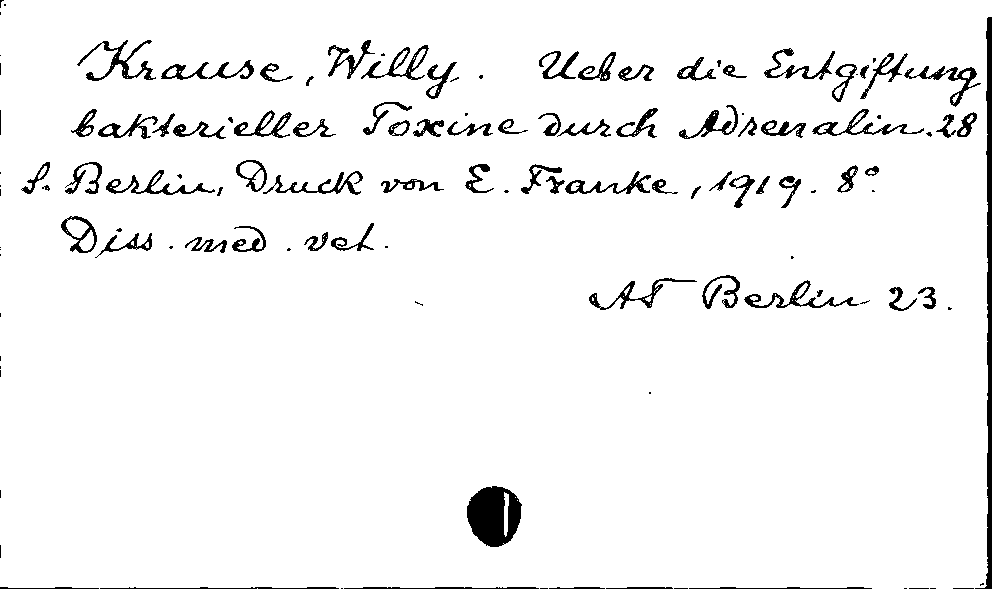 Krause, Willy. Ueber die Entgiftung
bakterieller Toxine durch Adrenalin. 28
S. Berlin, Druck von E. Franke, 1919. 8°.
Diss. med. vet.
AT Berlin 23.